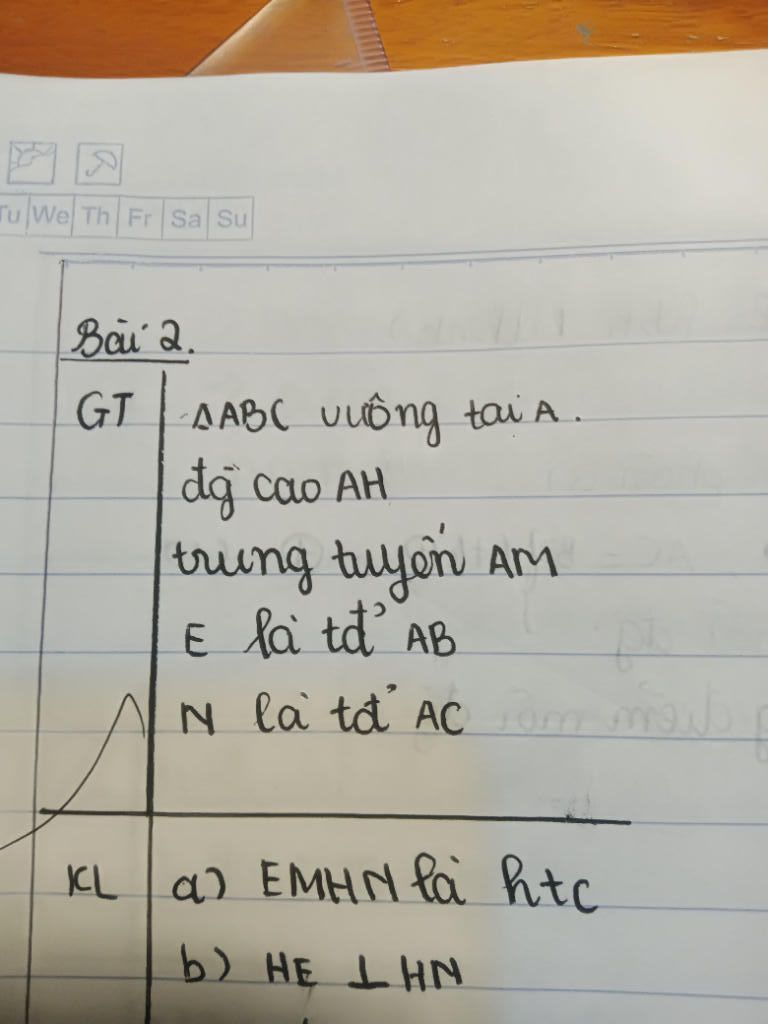 Tu We Th Fr Sa Su
Bài 2.
GT ΔABC vuông tai A.
đg cao AH
trung tuyến AM
E là tđ' AB
N là tđ' AC
KL a) EMHN là htc
b) HE ⊥ HN